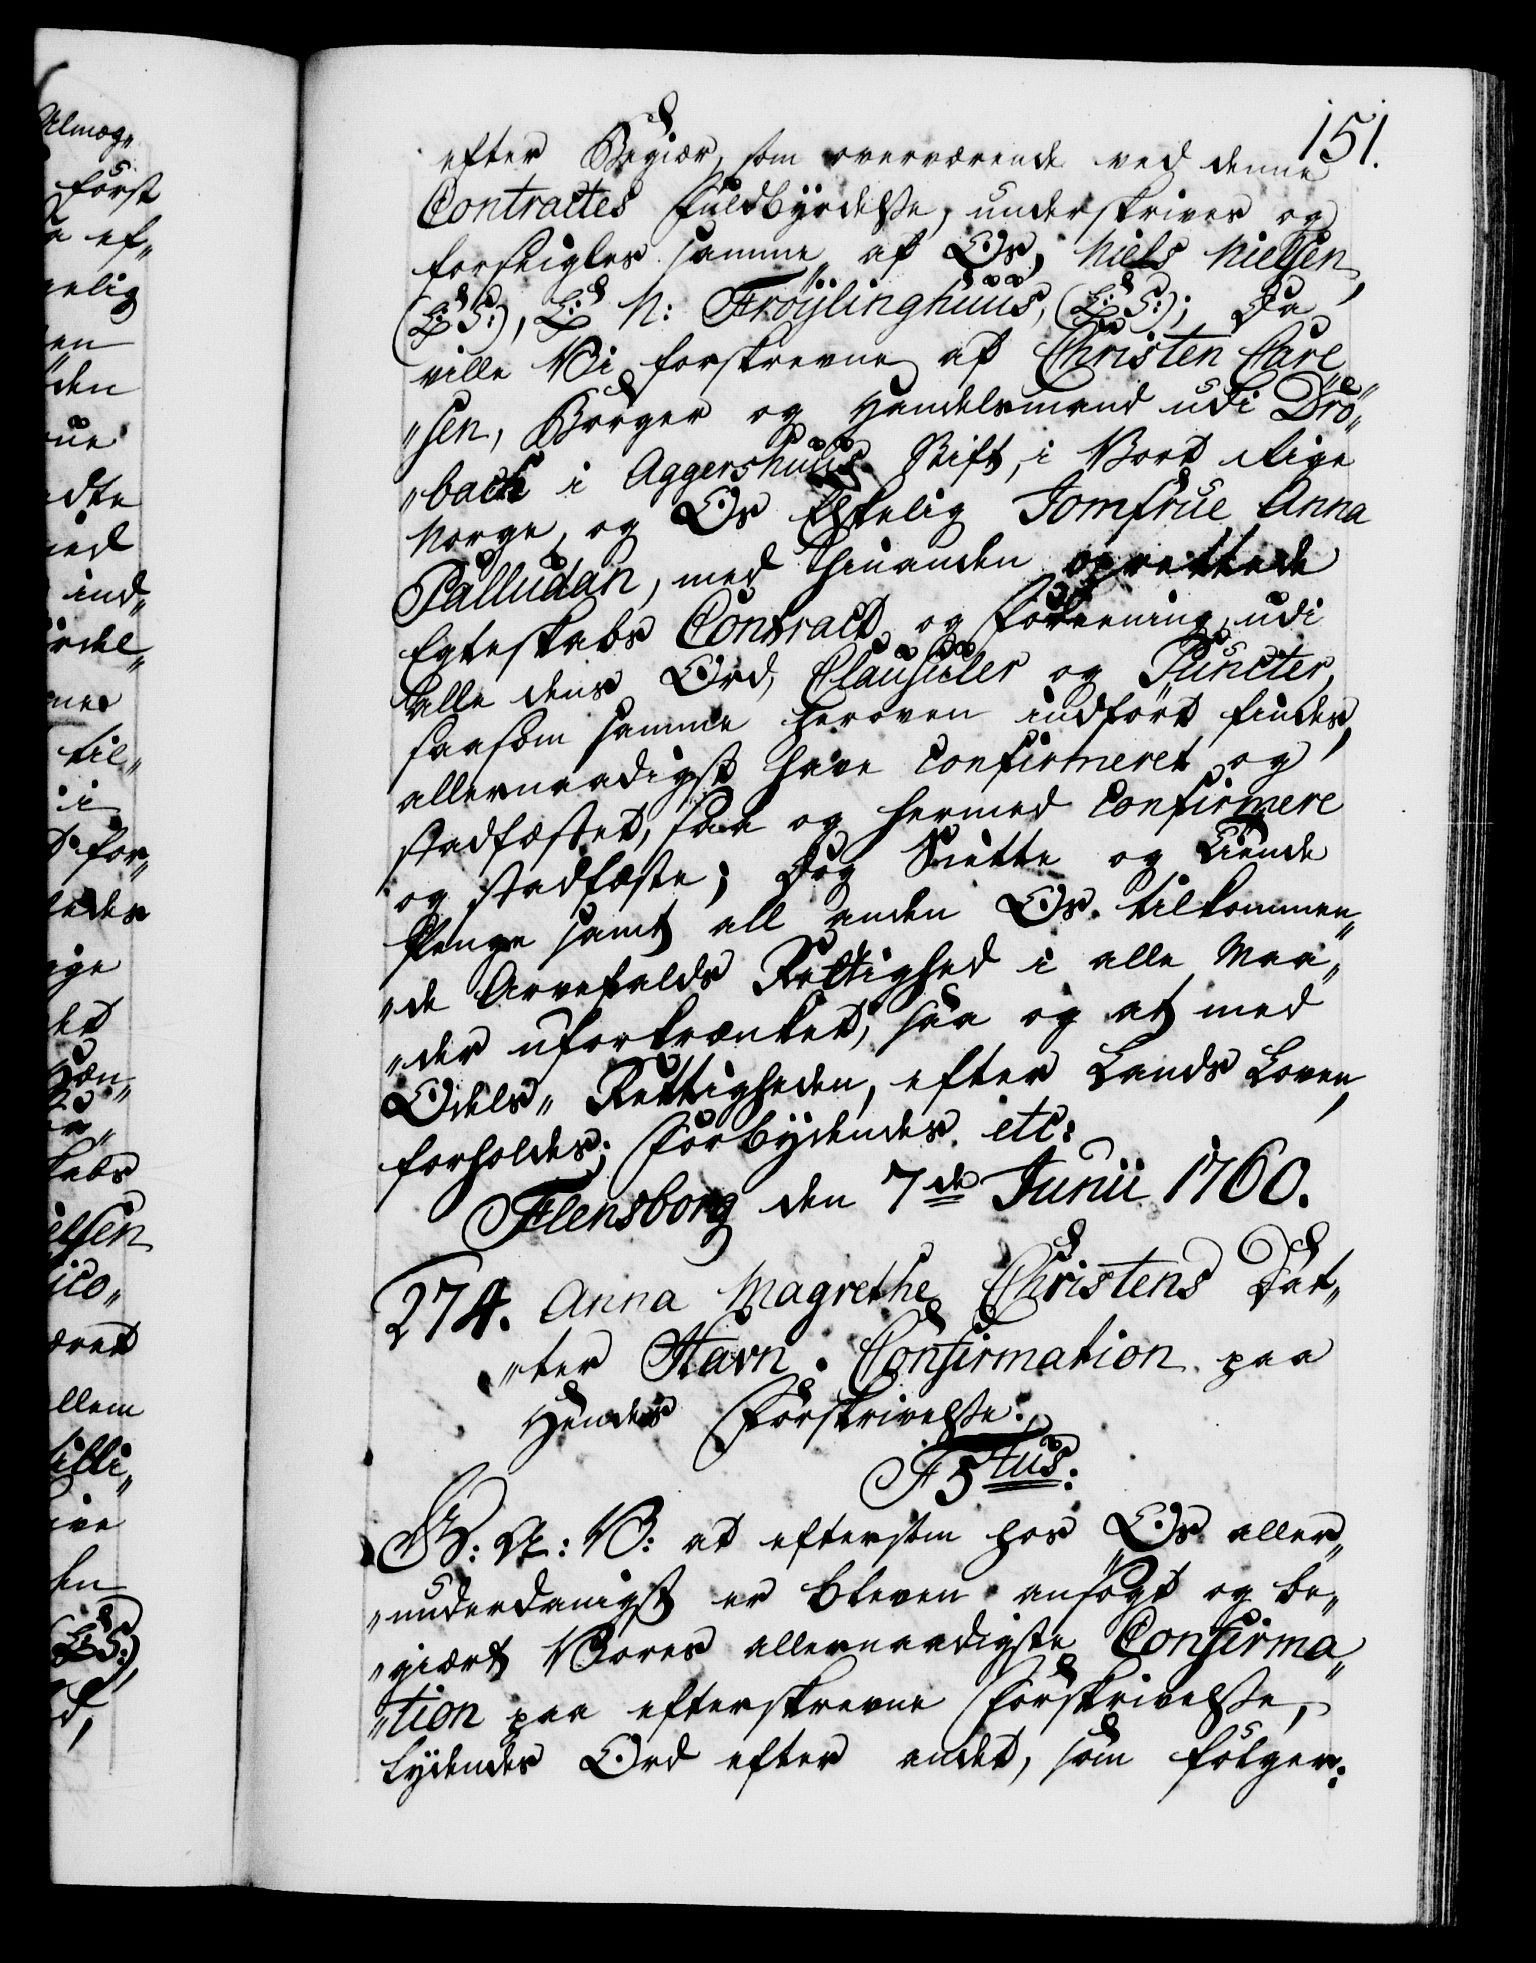 151.
efter Begiær, som overværende ved denne
Contractes Fuldbyrdelse, underskriver og
forseigler samme af Os, Niels Nielsen,
(L: S:), L: N: Fröylinghuus, (L: S:); Da
ville Vi forskrevne af Christen Carl„
„sen, Borger og Handelsmand udi Drö„
„bach i Aggershuus Stift, i Vort Rige
Norge, og Os Elskelig Jomfrue Anna
Palludan, med hinanden oprettede
Egteskabs Contract og Foreening udi
alle dens Ord, Clausuler og Puncter,
saasom samme heroven indført findes,
allernaadigst have confirmeret og
stadfæstet, saa og hermed confirmere
og stadfæste; Dog Siette og Tiende
Penge samt all anden Os tilkommen„
„de Arvefalds Rettighed i alle Maa„
„der uforkrænket, saa og at med
Odels„ Rettigheden, efter Lands Loven,
forholdes; Forbydendes etc:
Flensborg den 7de Junii 1760.
274. Anna Magrethe Christens Dat„
„ter Stavn. Confirmation paa
Hendes Forskrivelse.
F 5tus:
G: A: V: at eftersom hos Os aller„
„underdanigst er bleven ansøgt og be„
„giært Vores allernaadigste Confirma„
„tion paa efterskrevne Forskrivelse,
lydendes Ord efter andet, som følger: